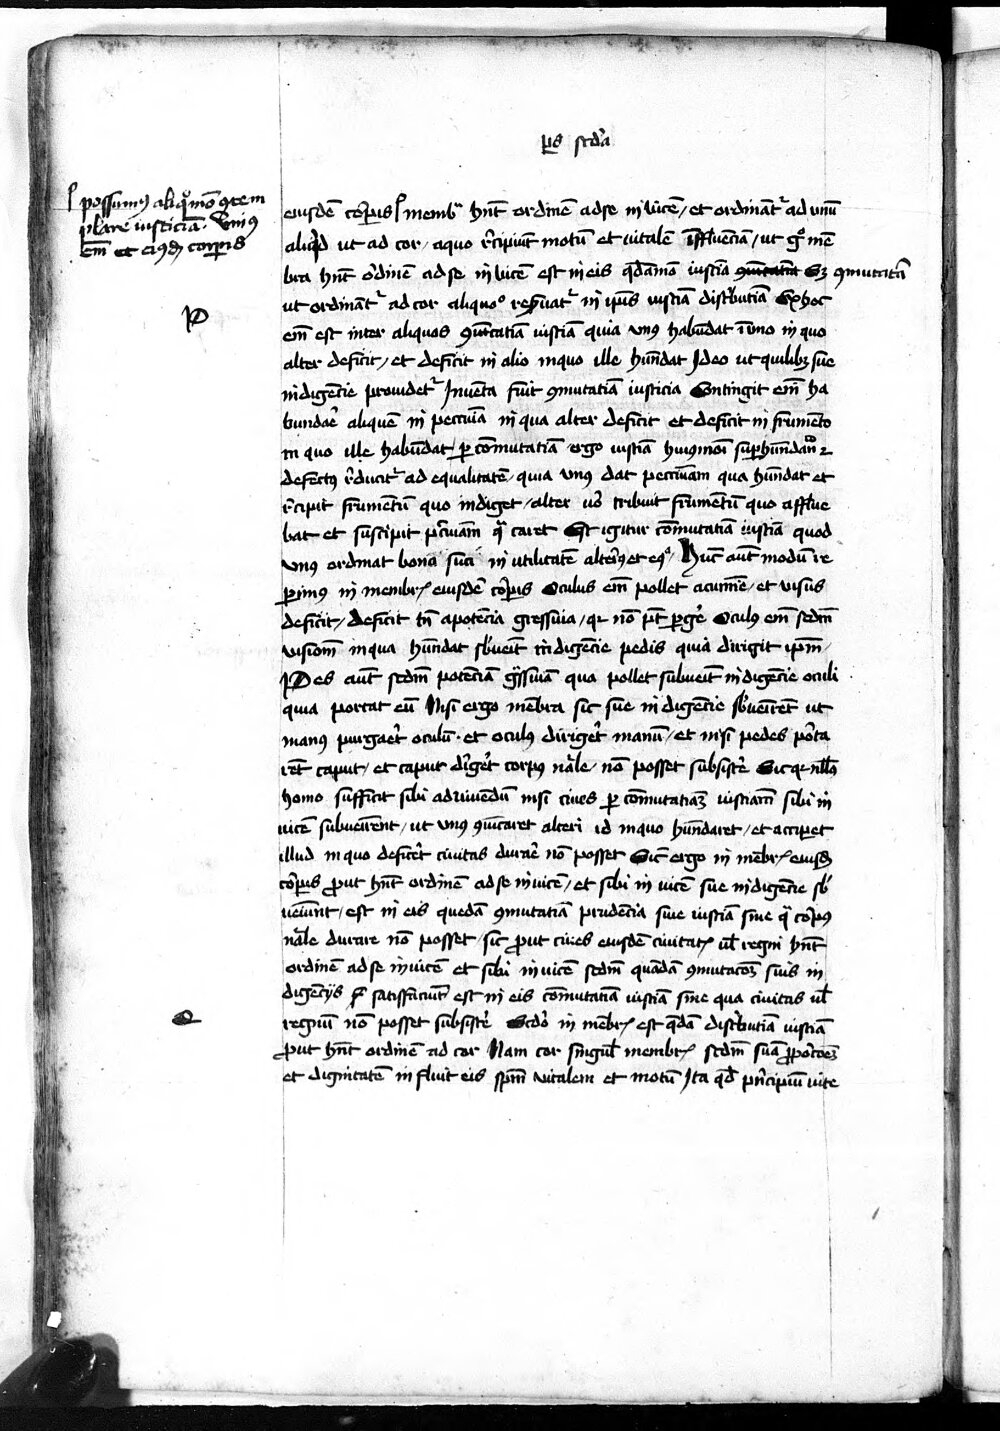 ps scda
possumus aliqomo gtem
plare iusticia. Unius
em et eiusd corpis
eiusde corpis memb hnt ordine adse inuice / et ordinant ad unu
aliqd ut ad cor / aquo rcipiunt motu et uitale influencia / ut go me
bra hnt ordine adse inuice est in eis qdamo iustia sz gmutata
ut ordinant ad cor aliquo reseruat in ipis iustia distbutia Ex hoc
em est inter aliquos gmutatia iustia quia unus habudat in uno in quo
alter deficit / et deficit in alio inquo ille hundat Ideo ut quilibz sue
indigencie prouidet Inuenta fuit gmutatia iusticia Contingit em ha
bundare aliquem in peccunia in qua alter deficit et deficit in frumento
in quo ille habundat / p commutatia ergo iustia huiusmoi suphundancia
defectus rducit ad equalitate / quia unus dat peccuniam qua hundat et
rcipit frumentum quo indiget / alter uo tribuit frumentum quo afflue
bat et suscipit pcuniam qa caret Est igitur commutatia iustia quod
unus ordinat bona sua in utilitate alterius et eqo / Hunc aut modum re
perimus in membr eiusde corpis Oculus em pollet acumine / et uisus
deficit / deficit tn apotencia gressiua / qr non pt pgere Oculus em scdm
uisionem inqua hundat sbuenit indigencie pedis quia dirigit ipm /
Pes aut scdm potencia gssiuam qua pollet subuenit indigencie oculi
quia portat eu Nisi ergo membra sic sue indigencie sbuenirent ut
manus purgaret oculum . et oculus dirigeret manum / et nisi pedes porta
rent caput / et caput digeret corpus nale / non posset subsistere Sic qr nullus
homo sufficit sibi aduiuendum nisi ciues p commutatiaz iustiam sibi in
uice subuenirent / ut unus gmutaret alteri id inquo hundaret / et acciperet
illud in quo deficeret ciuitas durare no posset Sic ergo in membr eiusd
corpis put hnt ordine adse inuice / et sibi in uice sue indigencie sb
ueniunt / est in eis queda gmutatia prudencia siue iustia sine qa corpus
nale durare non posset / sic put ciues eiusde ciuitat ul regni hnt
ordine adse inuice et sibi inuice scdm quamda gmutacoez suis in
digencijs satisfaciunt est in eis commutatia iustia sine qua ciuitas ul
regnum non posset subsistere Scdo in membr est qda distbutia iustia
put hnt ordine ad cor Nam cor singul membr scdm sua pporcoez
et dignitate influit eis spm uitalem et motu Ita qd principium uite